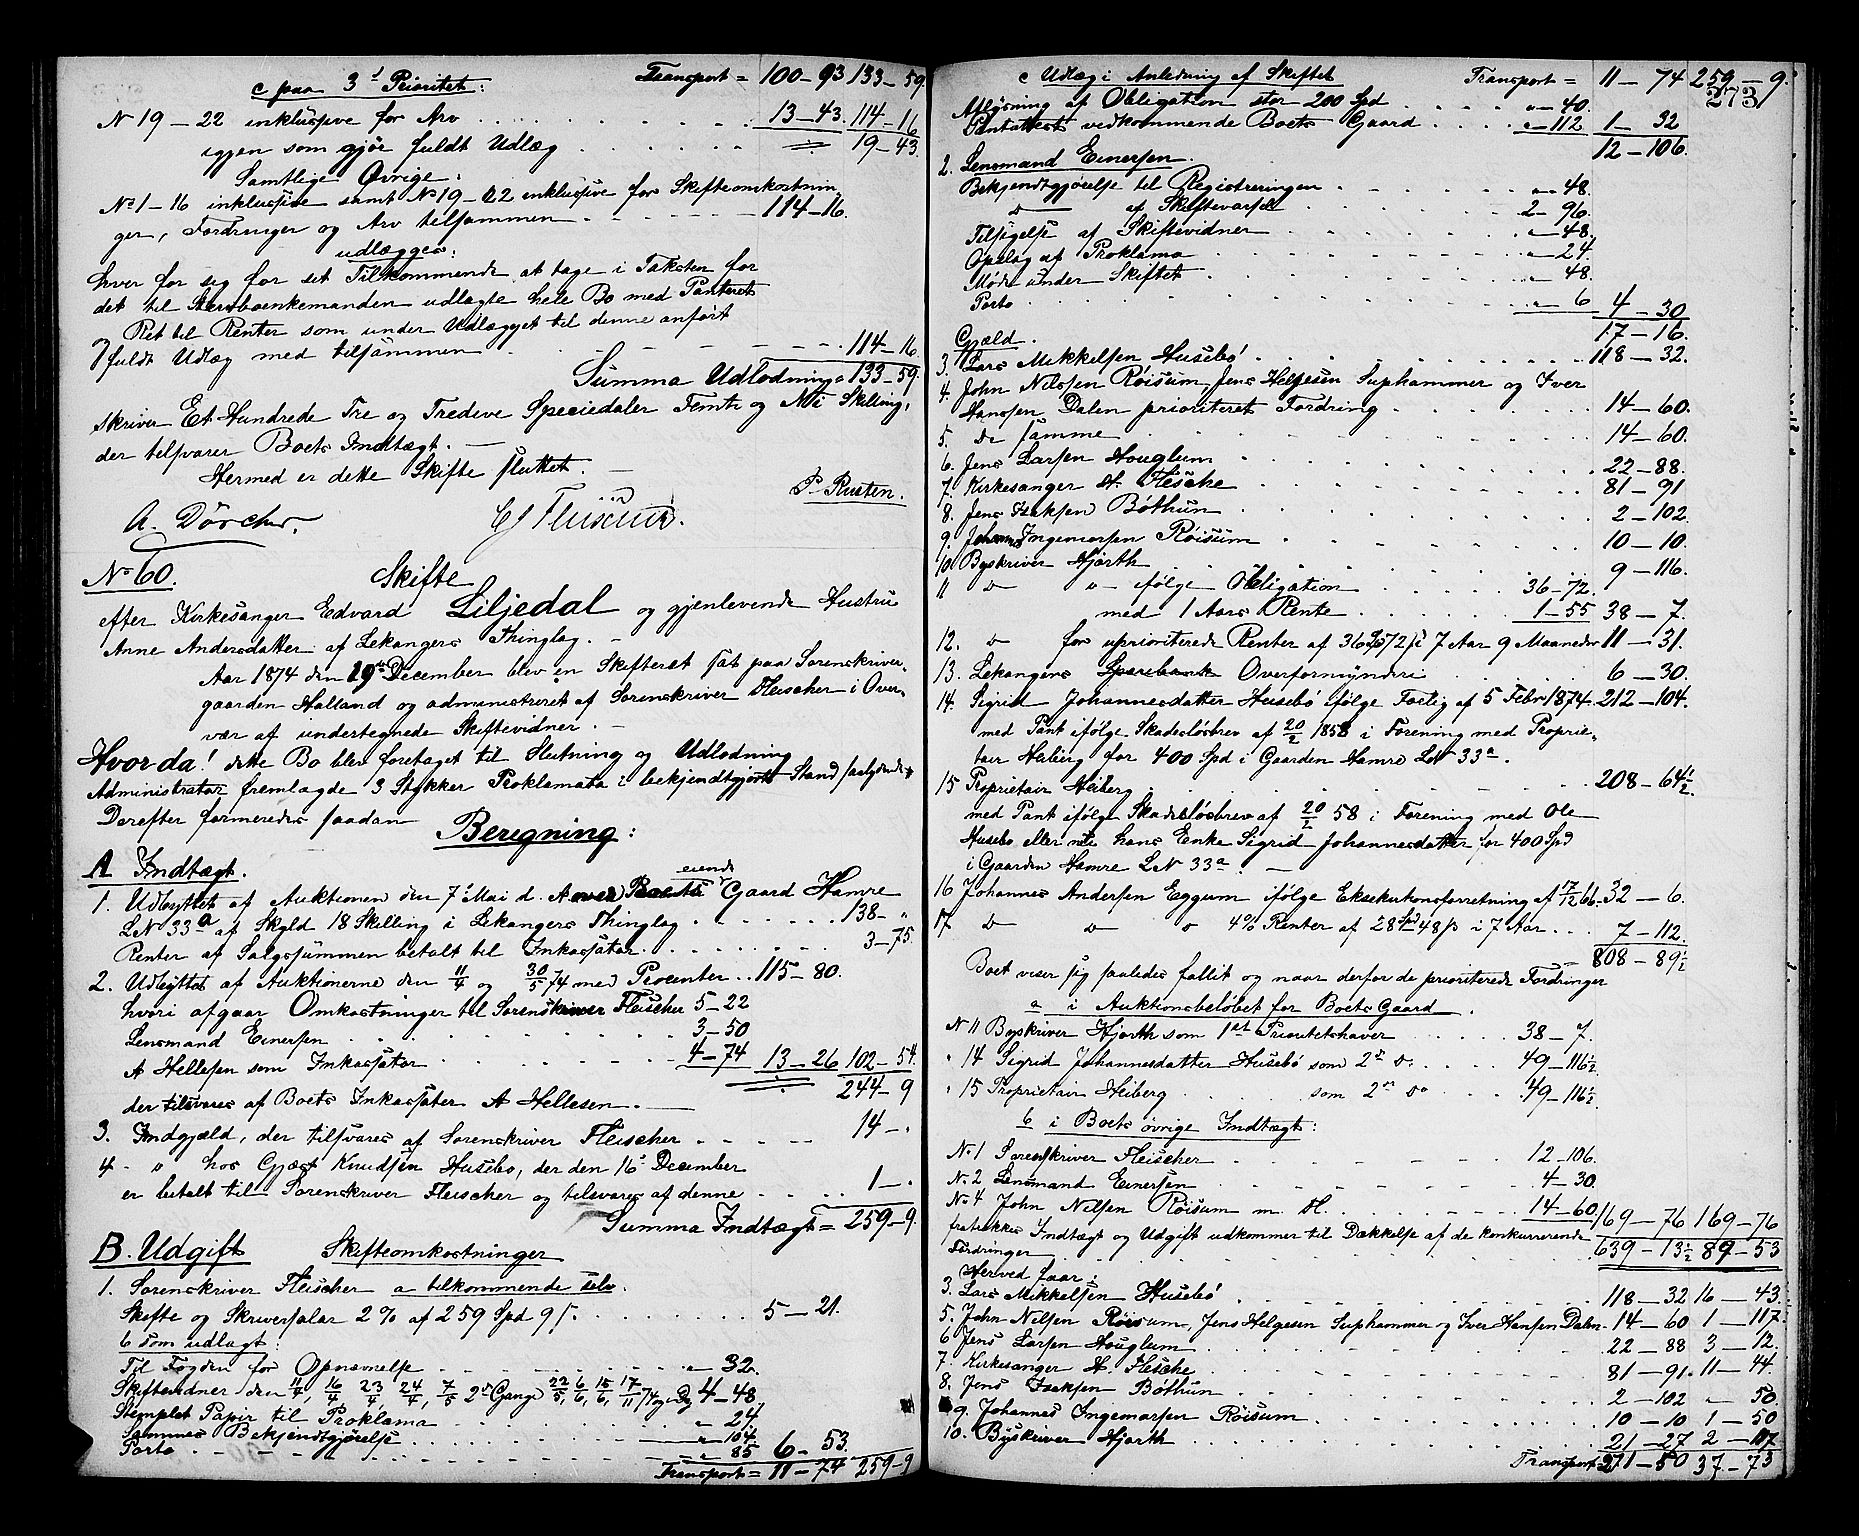 c paa 3d Prioritet: Transport = 100-93 133-59.
No 19 - 22 inklusive for Arv 13-43. 114-16
igjen som gjør fuldt Udlæg 19-43.
Samtlige Øvrige:
No 1-16 inklusive samt No 19-22 inklusive for Skifteomkostnin-
ger, Fordringer og Arv tilsammen 114-16.
udlægges:
hver for sig for sit Tilkommende at tage i Taksten for
det til Stervboenkemanden udlagte hele Bo med Panteret
og Ret til Renter som under Udlægget til denne anført
fuldt Udlæg med tilsammen 114-16.
Summa Udlodning = 133-59
skriver Et Hundrede Tre og Tredeve Speciedaler Femti og Ni Skilling,
der tilsvarer Boets Indtægt. -
Hermed er dette Skifte sluttet. -
P. Rusten.
A. Dörcher.
No 60. Skifte
efter Kirkesanger Edvard Liljedal og gjenlevende Hustru
Anne Andersdatter af Lekangers Thinglag. -
Aar 1874 den 19de December blev en Skifteret sat paa Sorenskriver-
gaarden Halland og administreret af Sorenskriver Fleischer i Over-
vær af undertegnede Skiftevidner. -
Hvorda! dette Bo blev foretaget til Slutning og Udlodning
Administrator fremlagde 3 Stykker Proklamata i bekjendtgjort Stand
Derefter formeredes saadan
Beregning:
A Indtægt.
1. Udbyttet af Auktionen den 7 Mai d. A over Boets eiende Gaard Hamre
LNo 33a af Skyld 18 Skilling i Lekangers Thinglag 138- "
Renter af Salgssummen betalt til Inkassator 3-75.
2. Udbyttet af Auktionerne den 11/4 og 30/5 74 med Procenter 115-80.
hvori afgaar Omkostninger til Sorenskriver Fleischer 5-22
Lensmand Einersen 3-50
A Hellesen som Inkassator 4-74 13-26 102-54.
244-9
der tilsvares af Boets Inkassator A Hellesen. -
3. Indgjæld, der tilsvares af Sorenskriver Fleischer 14-"
4 - " hos Gjæst Knudsen Husebø, der den 16 December
er betalt til Sorenskriver Fleischer og tilsvares af denne 1-"
Summa Indtægt = 259-9.
B. Udgift Skifteomkostninger
1. Sorenskriver Fleischer a tilkommende selv.
Skifte og Skriversalar 2% af 259 Spd 9 ß. 5-21.
b som udlagt:
Til Fogden for Opnævnelse " 32.
Skiftevidner den 11/4, 16/4, 23/4, 24/4, 7/5 2de Gange 22/5, 6/6, 15/6, 17/11 74 og Dg 4-48.
Stemplet Papir til Proklama " 24.
Sammes Bekjendtgjørelse " 104
Porto " 85 6-53.
Transport = 11-74 259-9
c Udlæg i Anledning af Skiftet Transport = 11-74 259-9.
273
Udløsning af Obligation stor 200 Spd "-40.
Pantattest vedkommende Boets Gaard "-112 1-32
12-106.
2. Lensmand Einersen.
Bekjendtgjørelse til Registreringen "-48.
do af Skiftevarsel 2-96.
Tilsigelse af Skiftevidner "-48.
Opslag af Proklama "-24.
Møde under Skiftet "-48.
Porto "-6 4-30
17-16.
Gjæld.
3. Lars Mikkelsen Husebø 118-32.
4. John Nilssen Røisum, Jens Helgesen Suphammer og Iver
Hanssen Dalen prioriteret Fordring 14-60.
5. De samme 14-60.
6. Jens Larsen Houglum 22-88.
7. Kirkesanger H. Flesche 81-91
8. Jens Isaksen Bøthun 2-102.
9. Johannes Ingemarsen Røisum 10-10.
10. Byskriver Hjorth 9-116.
11 do " ifølge Obligation 36-72.
med 1 Aars Rente 1-55 38-7.
12. do for uprioriterede Renter af 36 Spd 72 ß i 7 Aar 9 Maaneder 11-31.
13. Lekangers Sparebank Overformynderi 6-30.
14. Sigrid Johannesdatter Husebø ifølge Forlig af 5 Febr 1874. 212-104.
med Pant ifølge Skadesløsbrev af 20/2 1858 i Forening med Proprie-
tair Heiberg for 400 Spd i Gaarden Hamre LNo 33a.
15 Proprietair Heiberg 208-64 1/2.
med Pant ifølge Skadesløsbrev af 20/2 58 i Forening med Ole
Husebø eller nu hans Enke Sigrid Johannesdatter for 400 Spd
i Gaarden Hamre LNo 33a. -
16 Johannes Andersen Eggum ifølge Eksekutionsforretning af 17/12 66. 32-6.
17. do do " 4% Renter af 28 Spd 48 ß i 7 Aar 7-112.
808-89 1/2
Boet viser sig saaledes fallit og naar derfor de prioriterede Fordringer
a i Auktionsbeløbet for Boets Gaard.
No 11 Byskriver Hjorth som 1st Prioritetshaver 38-7.
" 14 Sigrid Johannesdatter Husebø som 2den do. 49-116 1/2
" 15 Proprietair Heiberg som 2den do 49-116 1/2
b i Boets øvrige Indtægt:
No 1 Sorenskriver Fleischer 12-106.
No 2 Lensmand Einersen 4-30.
No 4 John Nilsen Røisum m. Fl. 14-60 169-76 169-76
fratrækkes Indtægt og Udgift udkommer til Dækkelse af de konkurrerende
Fordringer 639-13 1/2 89-53
Herved faar:
3. Lars Mikkelsen Husebø 118-32 16-43.
5. John Nilsen Røisum, Jens Helgesen Suphammer og Iver Hansen Dalen 14-60 1-117.
6 Jens Larsen Houglum 22-88 3-12.
7. Kirkesanger H. Flesche 81-91. 11-44.
8. Jens Isaksen Bøthun 2-102 "-50.
9. Johannes Ingemarsen Røisum 10-10 1-50
10. Byskriver Hjorth 21-27 2-117
Transport 271-50 37-73